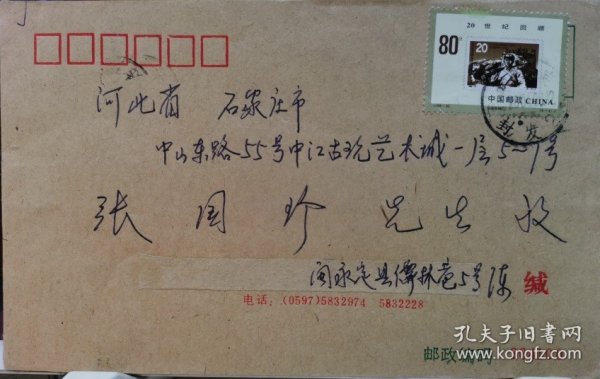 20世纪回顾
80分
20
中国邮政 CHINA
封发
河北省 石家庄市
中山东路55号中江古玩艺术城一层5-1号
张国珍先生收
闽永定县儒林巷5号陈 缄
电话：(0597)5832974 5832228
邮政编码
孔夫子旧书网
www.kongfz.com